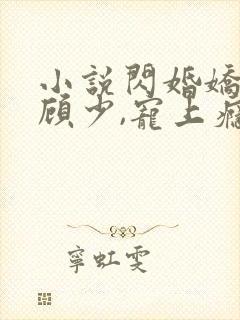 小說閃婚嬌
顧少,寵上癮
寧虹雯